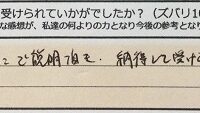 受けられていかがでしたか？（ズバリ10
な感想が、私達の何よりの力となり今後の参考とな
ご説明頂き、納得して受け